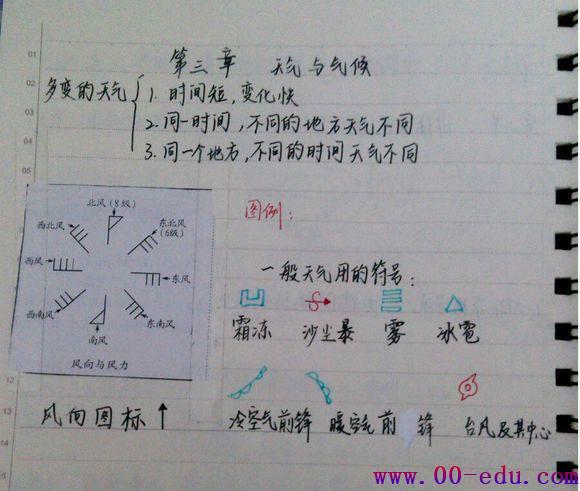 第三章 天气与气候
多变的天气
1. 时间短,变化快
2.同一时间,不同的地方天气不同
3.同一个地方,不同的时间天气不同
北风(8级)
西北风
东北风
(6级)
西风
东风
西南风
东南风
南风
风向与风力
风向图标↑
图例:
一般天气用的符号:
霜冻 沙尘暴 雾 冰雹
冷空气前锋 暖空气前锋 台风及其中心
www.00-edu.com